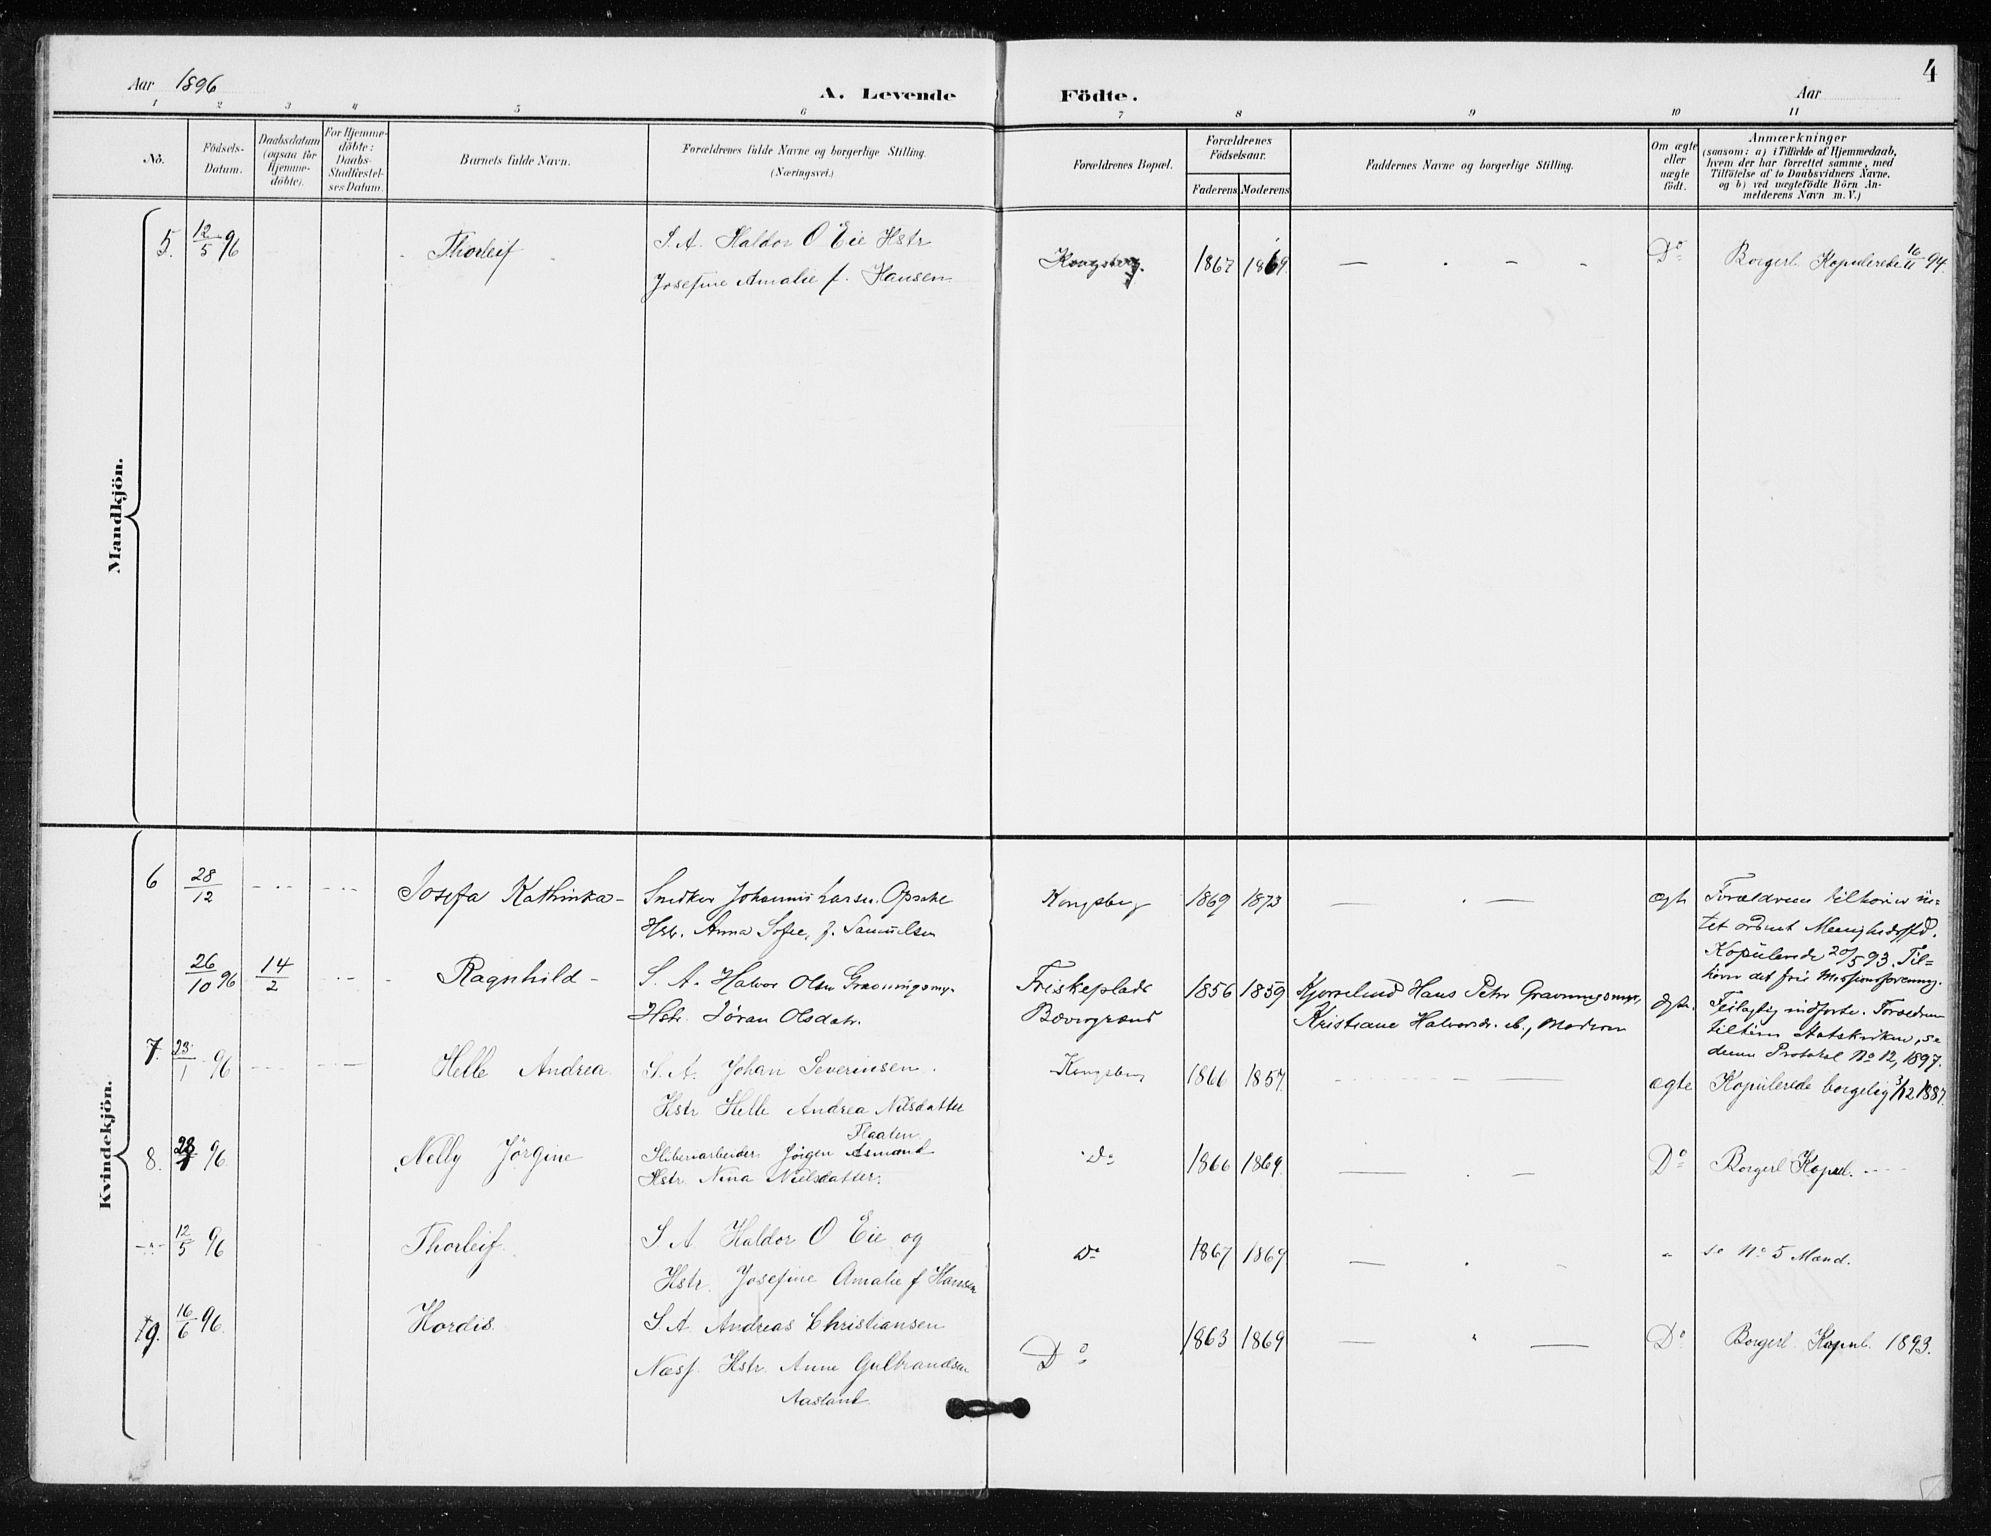 Aar 1896
A. Levende Födte.
Aar
4
1 2 3 4 5 6 7 8 9 10 11
No.
Födsels-Datum.
Daabsdatum (ogsaa for Hjemme-döbte).
For Hjemme-döbte: Daabs-Stadfæstel-ses-Datum.
Barnets fulde Navn.
Forældrenes fulde Navne og borgerlige Stilling.
(Næringsvei.)
Forældrenes Bopæl.
Forældrenes Födselsaar.
Faderens Moderens
Faddernes Navne og borgerlige Stilling.
Om ægte eller uægte födt.
Anmærkninger
(saasom: a) i Tilfælde af Hjemmedaab,
hvem der har forrettet samme, med
Tilföielse af to Daabsvidners Navne.
og b) ved uægtefödte Börn An-
melderens Navn m. V.)
Mandkjön.
5. 12/5 96 Thorleif S. A. Haldor O Eie Hstr Kongsberg. 1867 1869. — — Do Borgerl. Kopulerede 16/11 94.
Josefine Amalie f. Hansen
Kvindekjön.
6 28/12 Josefa Kathinka – Snedker Johannis Larsen Kongsberg 1869 1873 — — ægte Forældrene tilhører in-
Hstr. Anna Sofie, f. Samuelsen tet ordnet
Kopulerede 20/5 93. Til-
hører det frie Missionsforening.
26/10 96 14/2 Ragnhild – S. A. Halvor Olsen Gravningsmyr Friskeplads 1856 1859 Hans Petr Gravningsmyr, ægte. Feilagtig indførte. Forældrene
Hstr. Jøran Olsdatr. Kristiane Halvorsdr. Moderen tilhører Statskirken, se
denne Protokol No 12, 1897.
7. 23/1 96 Helle Andrea S. A. Johan Severinsen. Kongsberg 1866 1857 — ægte Kopulerede borgelig 3/12 1887.
Hstr Helle Andrea Nilsdatter
Flaaten
8. 28/1 96 Nelly Jörgine Sliberiarbeider Jörgen Asmund Do 1866 1869. — — Do Borgerl Kopul.
Hstr. Nina Nielsdatter.
12/5 96 Thorleif. S. A. Haldor O Eie og Do 1867 1869 — " se No 5 Mænd.
Hstr. Josefine Amalie f Hansen
9. 16/6 96. Hordis. S. A. Andreas Christiansen Do 1863 1869 — — Do Borgerl. Kopul. 1893.
Næsf. Hstr. Anne Gulbrandsen
Aasland.